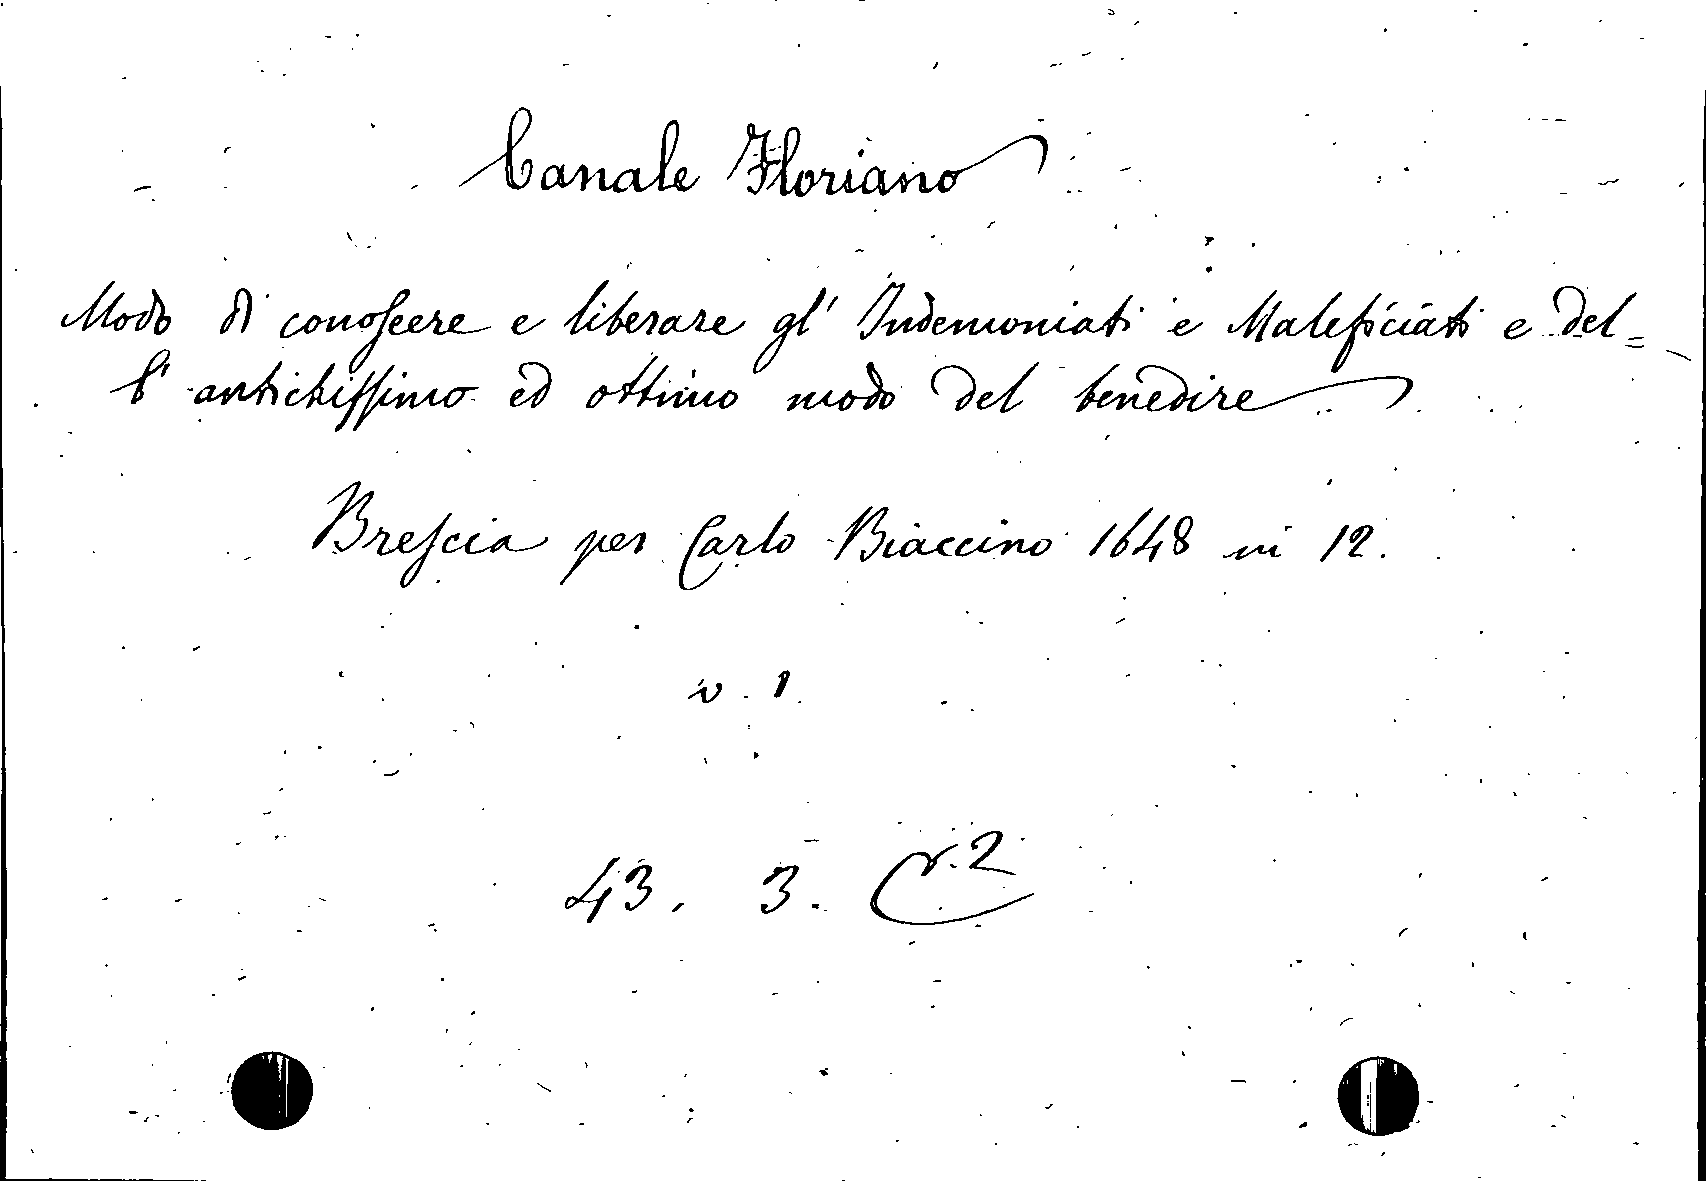 Canale Floriano
Modo di conoſcere e liberare gl' Indemoniati e Maleficiati e del=
l' antichiſſimo ed ottimo modo del benedire
Breſcia per Carlo Biaccino 1648 in 12.
v. 1
43. 3. r. 2